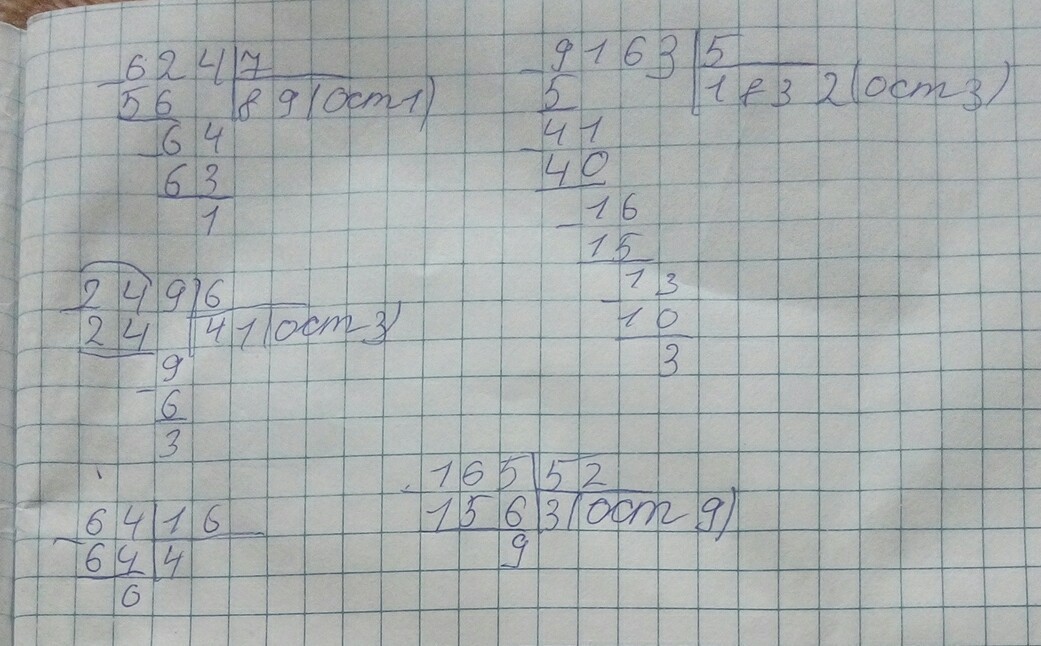 624|7
- 56 |89(ост 1)
- 64
63
1
9163|5
- 5 |1832(ост 3)
- 41
40
- 16
15
- 13
10
3
249|6
- 24 |41(ост 3)
- 9
6
3
64|16
- 64|4
0
165|52
- 156|3(ост 9)
9